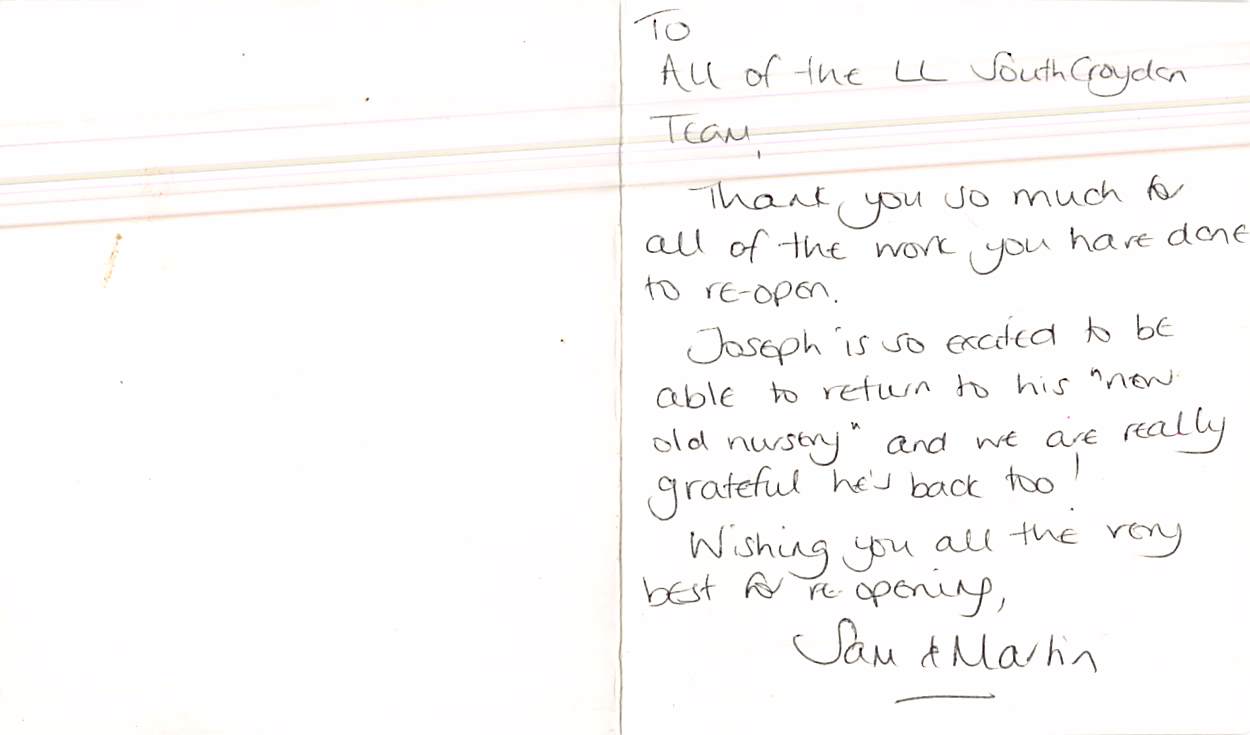 To
All of the LL South Croydon
Team,
Thank you so much for
all of the work you have done
to re-open.
Joseph is so excited to be
able to return to his "new
old nursery" and we are really
grateful he's back too!
Wishing you all the very
best for re-opening,
Sam & Martin